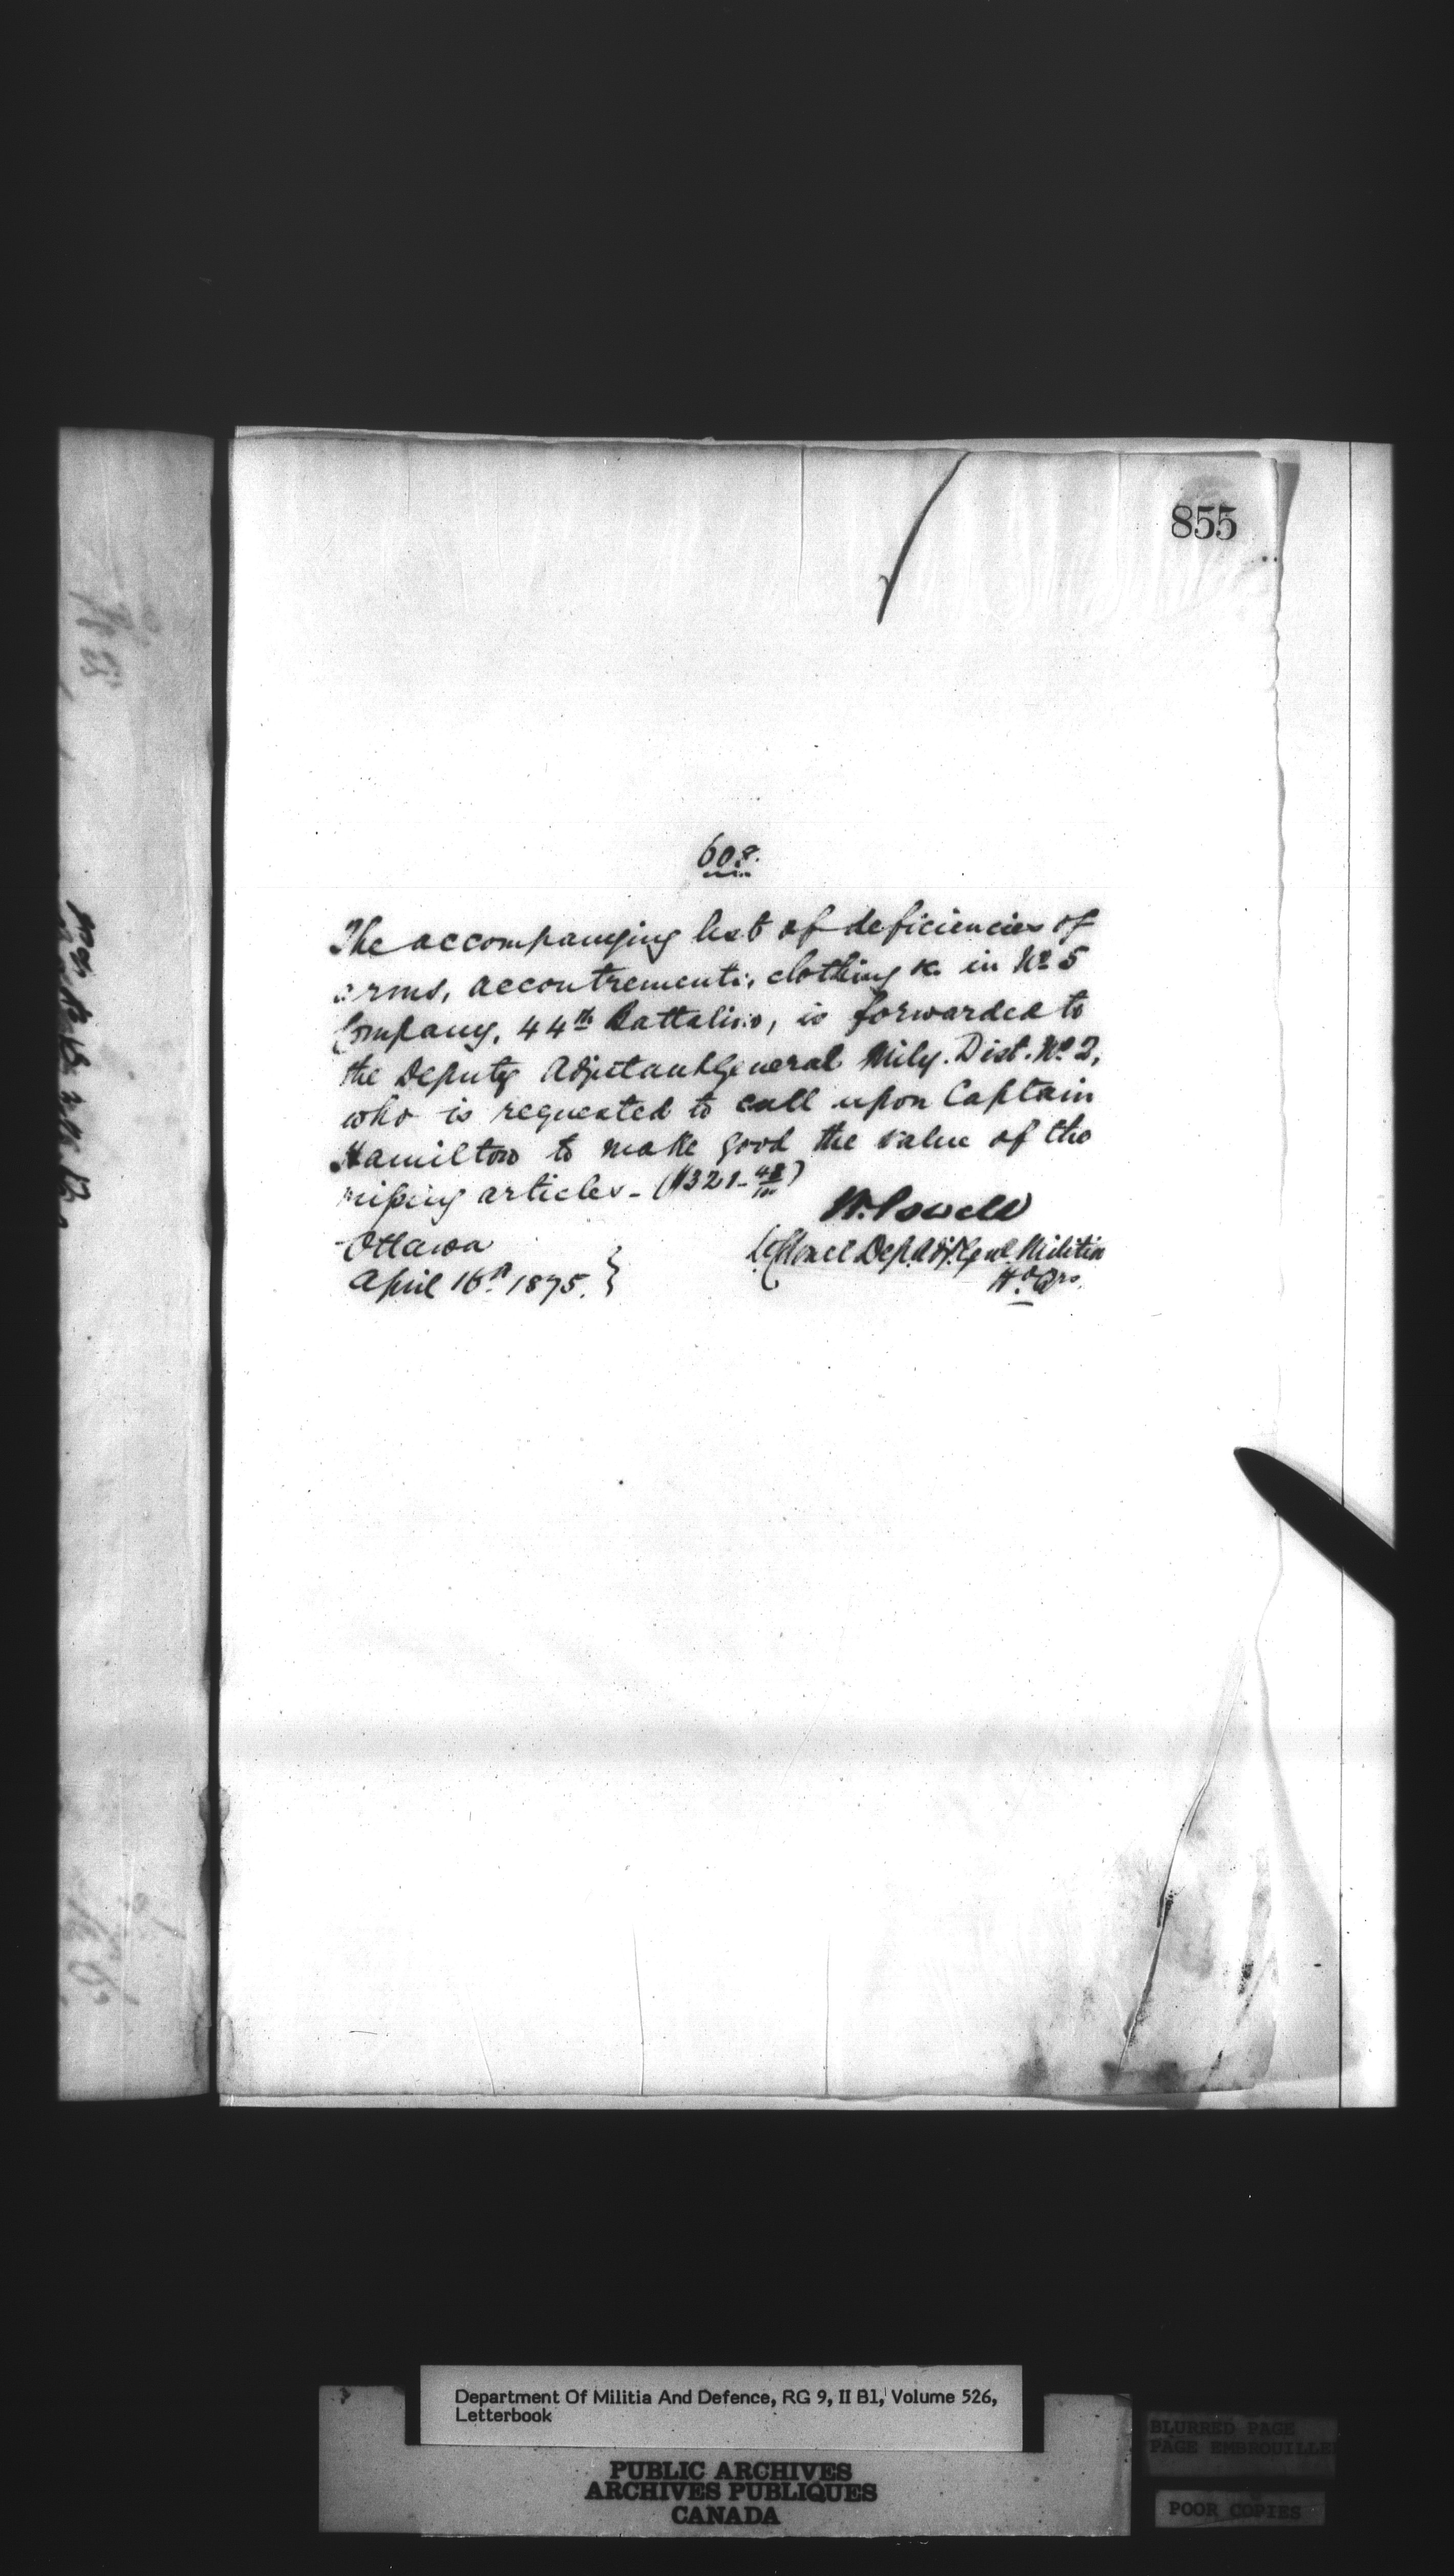 855
608.
The accompanying list of deficiencies of
arms, accoutrements, clothing &c in No 5
Company, 44th Battalion, is forwarded to
the Deputy Adjutant General Mily. Dist. No 2,
who is requested to call upon Captain
Hamilton to make good the value of the
missing articles - ($321-48/100)
W. Powell
Ottawa
April 16th 1875.
Lt Colonel Dep. Adjt. Genl. Militia
Hd Qrs.
Department Of Militia And Defence, RG 9, II B1, Volume 526,
Letterbook
PUBLIC ARCHIVES
ARCHIVES PUBLIQUES
CANADA
BLURRED PAGE
PAGE EMBROUILLE
POOR COPIES